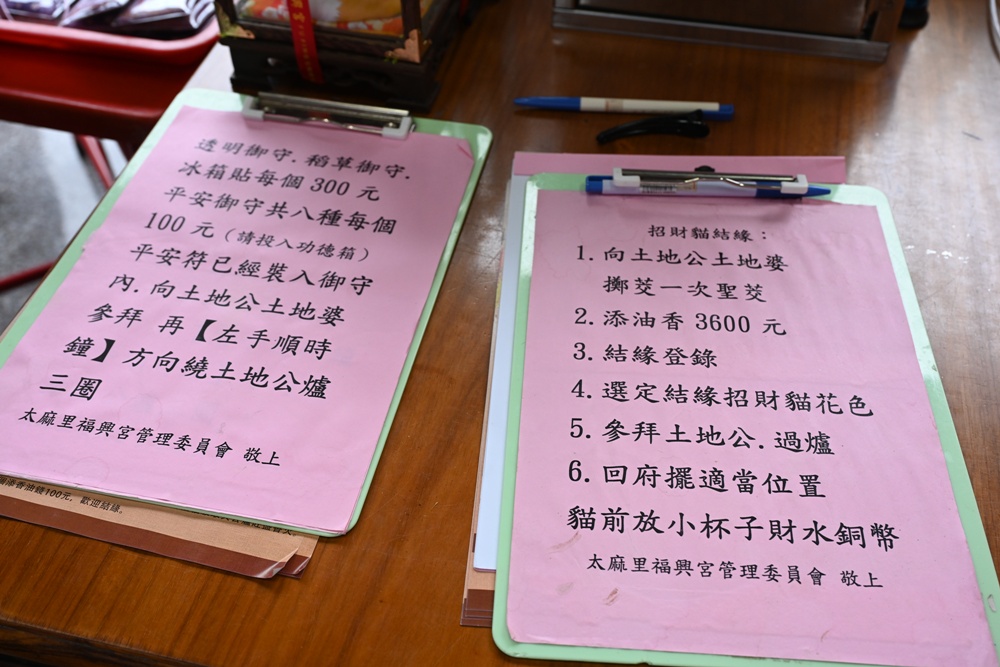 透明御守.稻草御守.
冰箱貼每個 300 元
平安御守共八種每個
100 元（請投入功德箱）
平安符已經裝入御守
內.向土地公土地婆
參拜 再【左手順時
鐘】方向繞土地公爐
三圈
太麻里福興宮管理委員會 敬上
添香油錢100元, 歡迎結緣。
招財貓結緣：
1.向土地公土地婆
擲筊一次聖筊
2.添油香 3600 元
3.結緣登錄
4.選定結緣招財貓花色
5.參拜土地公.過爐
6.回府擺適當位置
貓前放小杯子財水銅幣
太麻里福興宮管理委員會 敬上